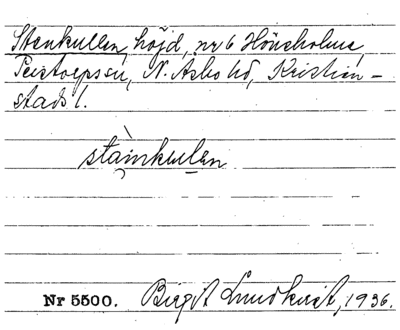 Stenkullen, höjd, nr 6 Hönsholma,
Perstorps sn, N. Åsbo hd, Kristian-
stads l.
stàinkulen
Nr 5500. Birgit Lundkvist, 1936.